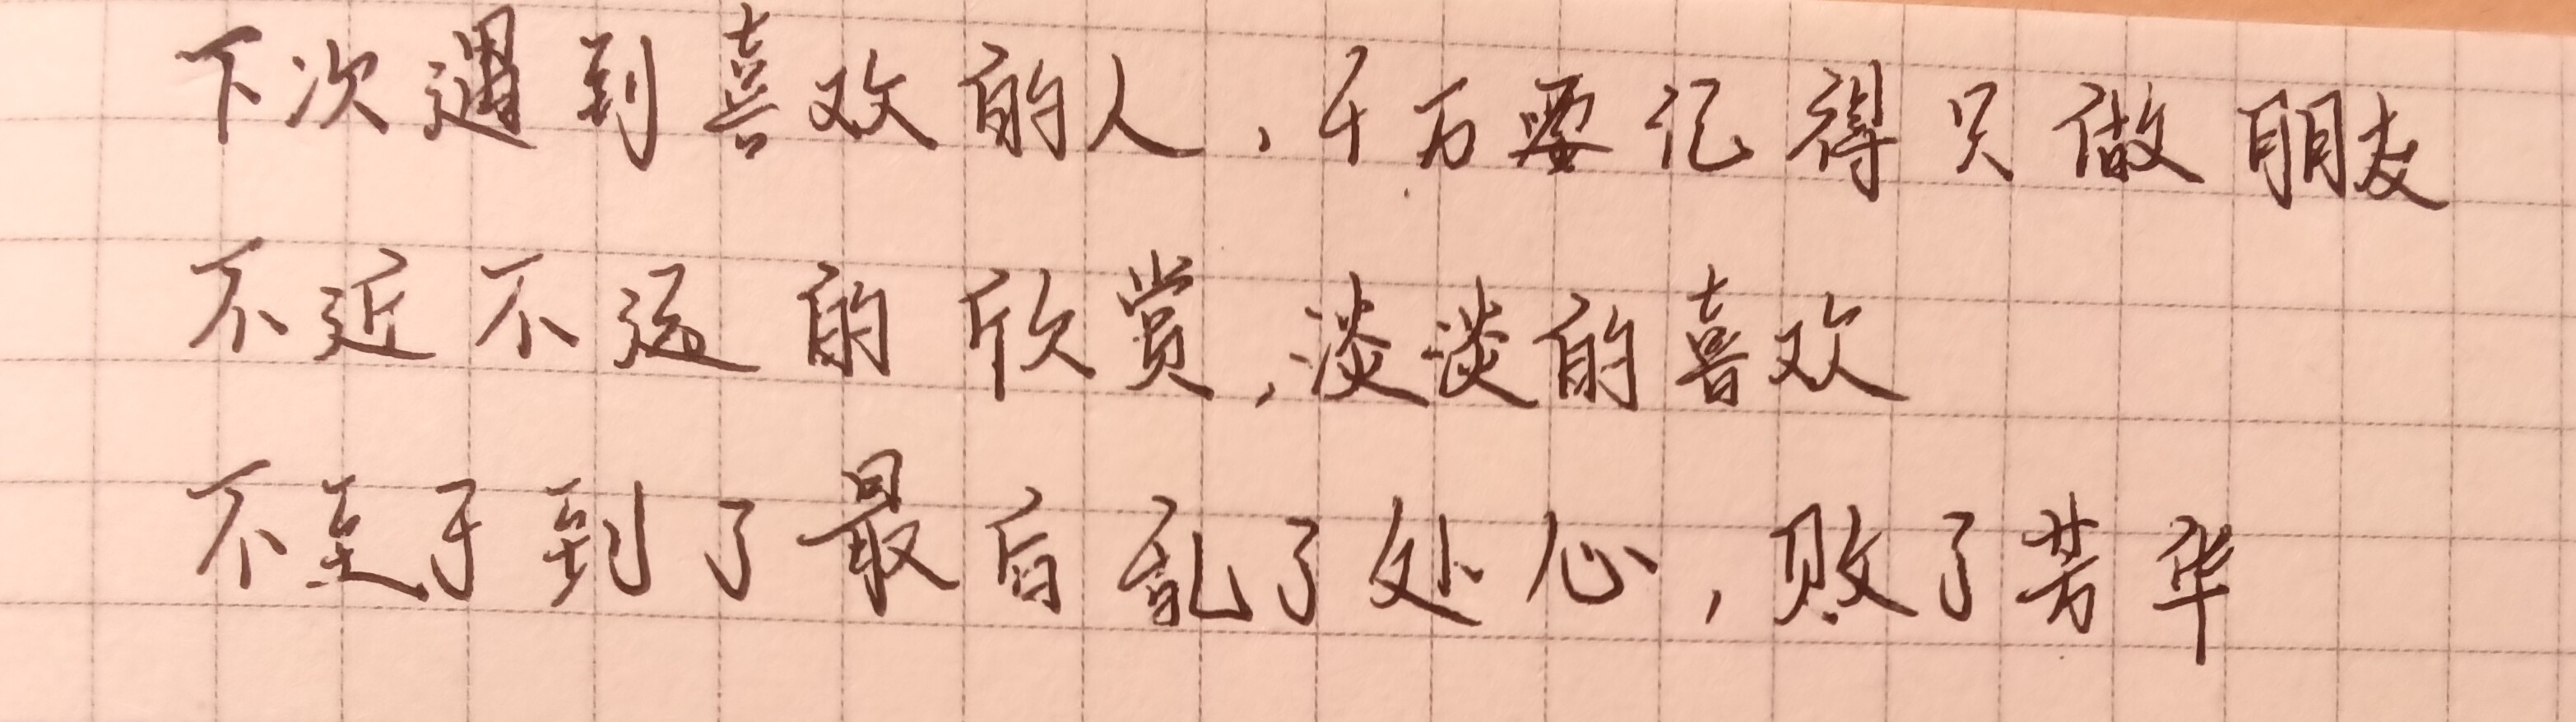 下次遇到喜欢的人，千万要记得只做朋友
不近不远的欣赏，淡淡的喜欢
不至于到了最后乱了处心，败了芳华